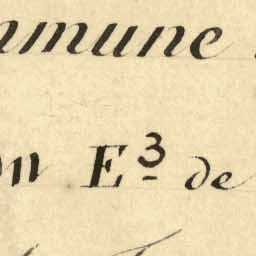 mmune
on E³ de